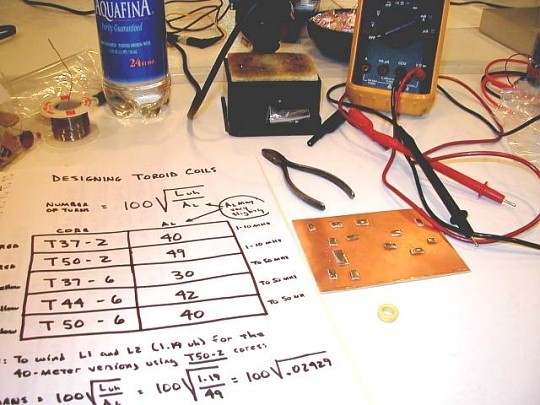 AQUAFINA
Purity Guaranteed
24
DESIGNING TOROID COILS
NUMBER OF TURNS = 100 √ L uh / AL
AL may vary slightly
CORE AL
T37-2 40 1-10 MHz
T50-2 49 1-10 MHz
T37-6 30 TO 50 MHz
T44-6 42 TO 50 MHz
T50-6 40 TO 50
: To wind L1 and L2 (1.19 uh) for the
40-meter versions using T50-2 cores:
= 100 √ Luh / AL = 100 √ 1.19 / 49 = 100 √ .02429